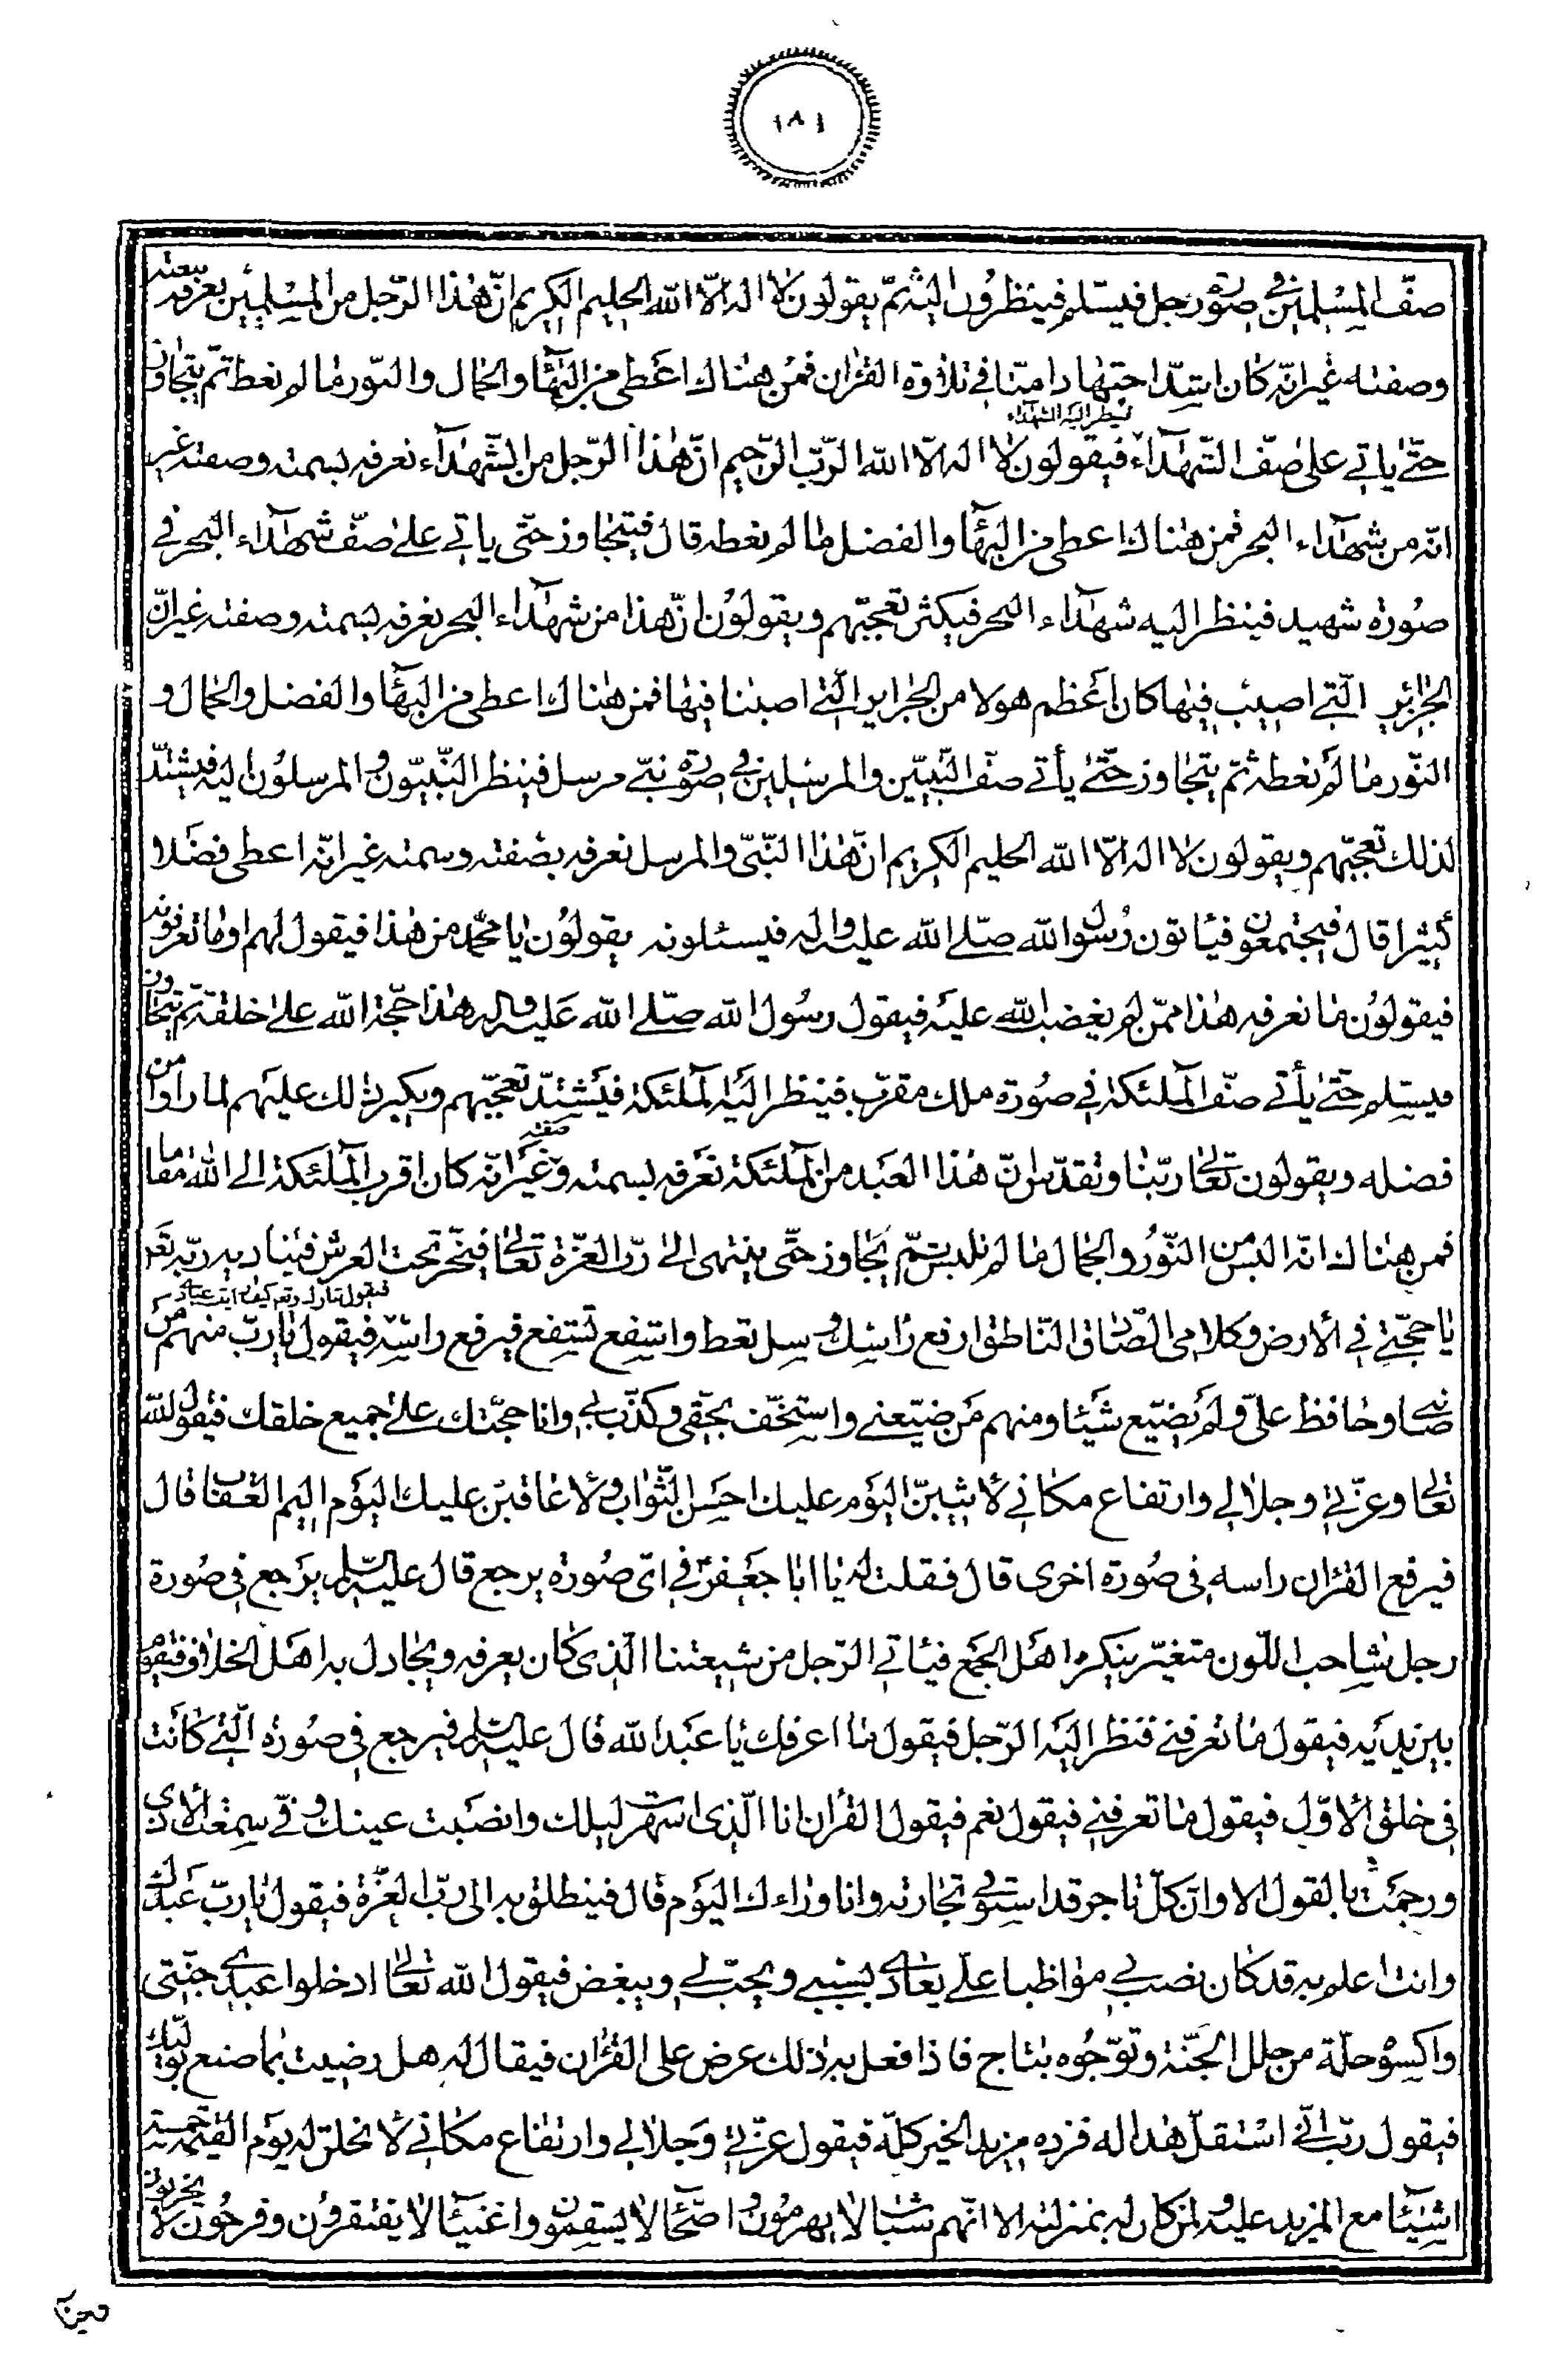 ١٨١
صفّ المسلمين في صورة رجل فيسلم فينظرون اليه ثمّ يقولون لا اله الّا الله الحليم الكريم انّ هذا الرّجل من المسلمين نعرفه بنعته
وصفته غير انّه كان اشدّ اجتهادا منّا في تلاوة القران فمن هناك اعطى من البهآء والجمال والنّور ما لم نعط ثمّ يتجاوز
حتّى ياتي على صفّ الشّهدآء فينظر اليه الشهدآء فيقولون لا اله الّا الله الرّبّ الرّحيم انّ هذا الرّجل من الشّهدآء نعرفه بسمته وصفته غير
انّه من شهدآء البحر فمن هناك اعطى من البهآء والفضل ما لم نعطه قال فيتجاوز حتّى ياتي على صفّ شهدآء البحر في
صورة شهيد فينظر اليه شهدآء البحر فيكثر تعجّبهم ويقولون انّ هذا من شهدآء البحر نعرفه بسمته وصفته غير انّ
الجزائر الّتي اصيب فيها كان اعظم هولا من الجزاير الّتي اصبنا فيها فمن هناك اعطى من البهآء والفضل والجمال و
النّور ما لم نعطه ثمّ يتجاوز حتّى يأتي صفّ النّبيّين والمرسلين في صورة نبيّ مرسل فينظر النّبيّون والمرسلون اليه فيشتدّ
لذلك تعجّبهم ويقولون لا اله الّا الله الحليم الكريم انّ هذا النّبيّ والمرسل نعرفه بصفته وسمته غير انّه اعطى فضلا
كثيرا قال فيجتمعون فيأتون رسول الله صلّى الله عليه واله فيسئلونه يقولون يا محمّد من هذا فيقول لهم اوما تعرفونه
فيقولون ما نعرفه هذا ممّن لم يغضب الله عليه فيقول رسول الله صلّى الله عليه واله هذا حجّة الله على خلقه ثمّ يتجاوز
فيسلم حتّى يأتي صفّ الملئكة في صورة ملك مقرّب فينظر اليه الملئكة فيشتدّ تعجّبهم ويكبر ذلك عليهم لما راوا من
فضله ويقولون تعالى ربّنا وتقدّس انّ هذا العبد من الملئكة نعرفه بسمته وصفته غير انّه كان اقرب الملئكة الى الله مقاما
فمن هناك انّه البس من النّور والجمال ما لم نلبس ثمّ يجاوز حتّى ينتهى الى ربّ العزّة تعالى فيخرّ تحت العرش فيناديه ربّه تعه
يا حجّتي في الارض وكلامى الصّادق النّاطق ارفع راسك وسل تعط واشفع تشفع فيرفع راسه فيقول تبارك وتع كيف رايت عبادي فيقول يا ربّ منهم من
صانني وحافظ عليّ ولم يضيّع شيئا ومنهم من ضيّعني واستخفّ بحقّى وكذّب بي وانا حجّتك على جميع خلقك فيقول الله
تعالى وعزّتي وجلالي وارتفاع مكاني لاثيبنّ اليوم عليك احسن الثّواب ولاعاقبنّ عليك اليوم اليم العقاب قال
فيرفع القران راسه في صورة اخرى قال فقلت له يا ابا جعفر في اىّ صورة يرجع قال عليه السلم يرجع في صورة
رجل شاحب اللّون متغيّر ينكره اهل الجمع فيأتي الرّجل من شيعتنا الّذى كان يعرفه ويجادل به اهل الخلاف فيقوم
بين يديه فيقول ما تعرفني فنظر اليه الرّجل فيقول ما اعرفك يا عبد الله قال عليه السلم فيرجع في صورة الّتي كانت
في خلق الاوّل فيقول ما تعرفني فيقول نعم فيقول القران انا الّذى اسهرت ليلك وانصبت عينك وفيّ سمعت الاذى
ورجمت بالقول الا وانّ كلّ تاجر قد استوفى تجارته وانا وراءك اليوم قال فينطلق به الى ربّ العزّة فيقول يا ربّ عبدك
وانت اعلم به قد كان نصب بي مواظبا عليّ يعادى بسببي ويحبّ لي ويبغض فيقول الله تعالى ادخلوا عبدي جنّتى
واكسوه حلّة من حلل الجنّة وتوّجوه بتاج فاذا فعل به ذلك عرض على القران فيقال له هل رضيت بما صنع بوليّك
فيقول ربّ انّي استقلّ هذا له فزده مزيد الخير كلّه فيقول عزّتي وجلالي وارتفاع مكاني لانحلنّ له يوم القيمة خمسة
اشيآء مع المزيد عليه ولمن كان له بمنزلته الا انّهم شباب لا يهرمون واصحّآء لا يسقمون واغنيآء لا يفتقرون وفرحون لا يحزنون